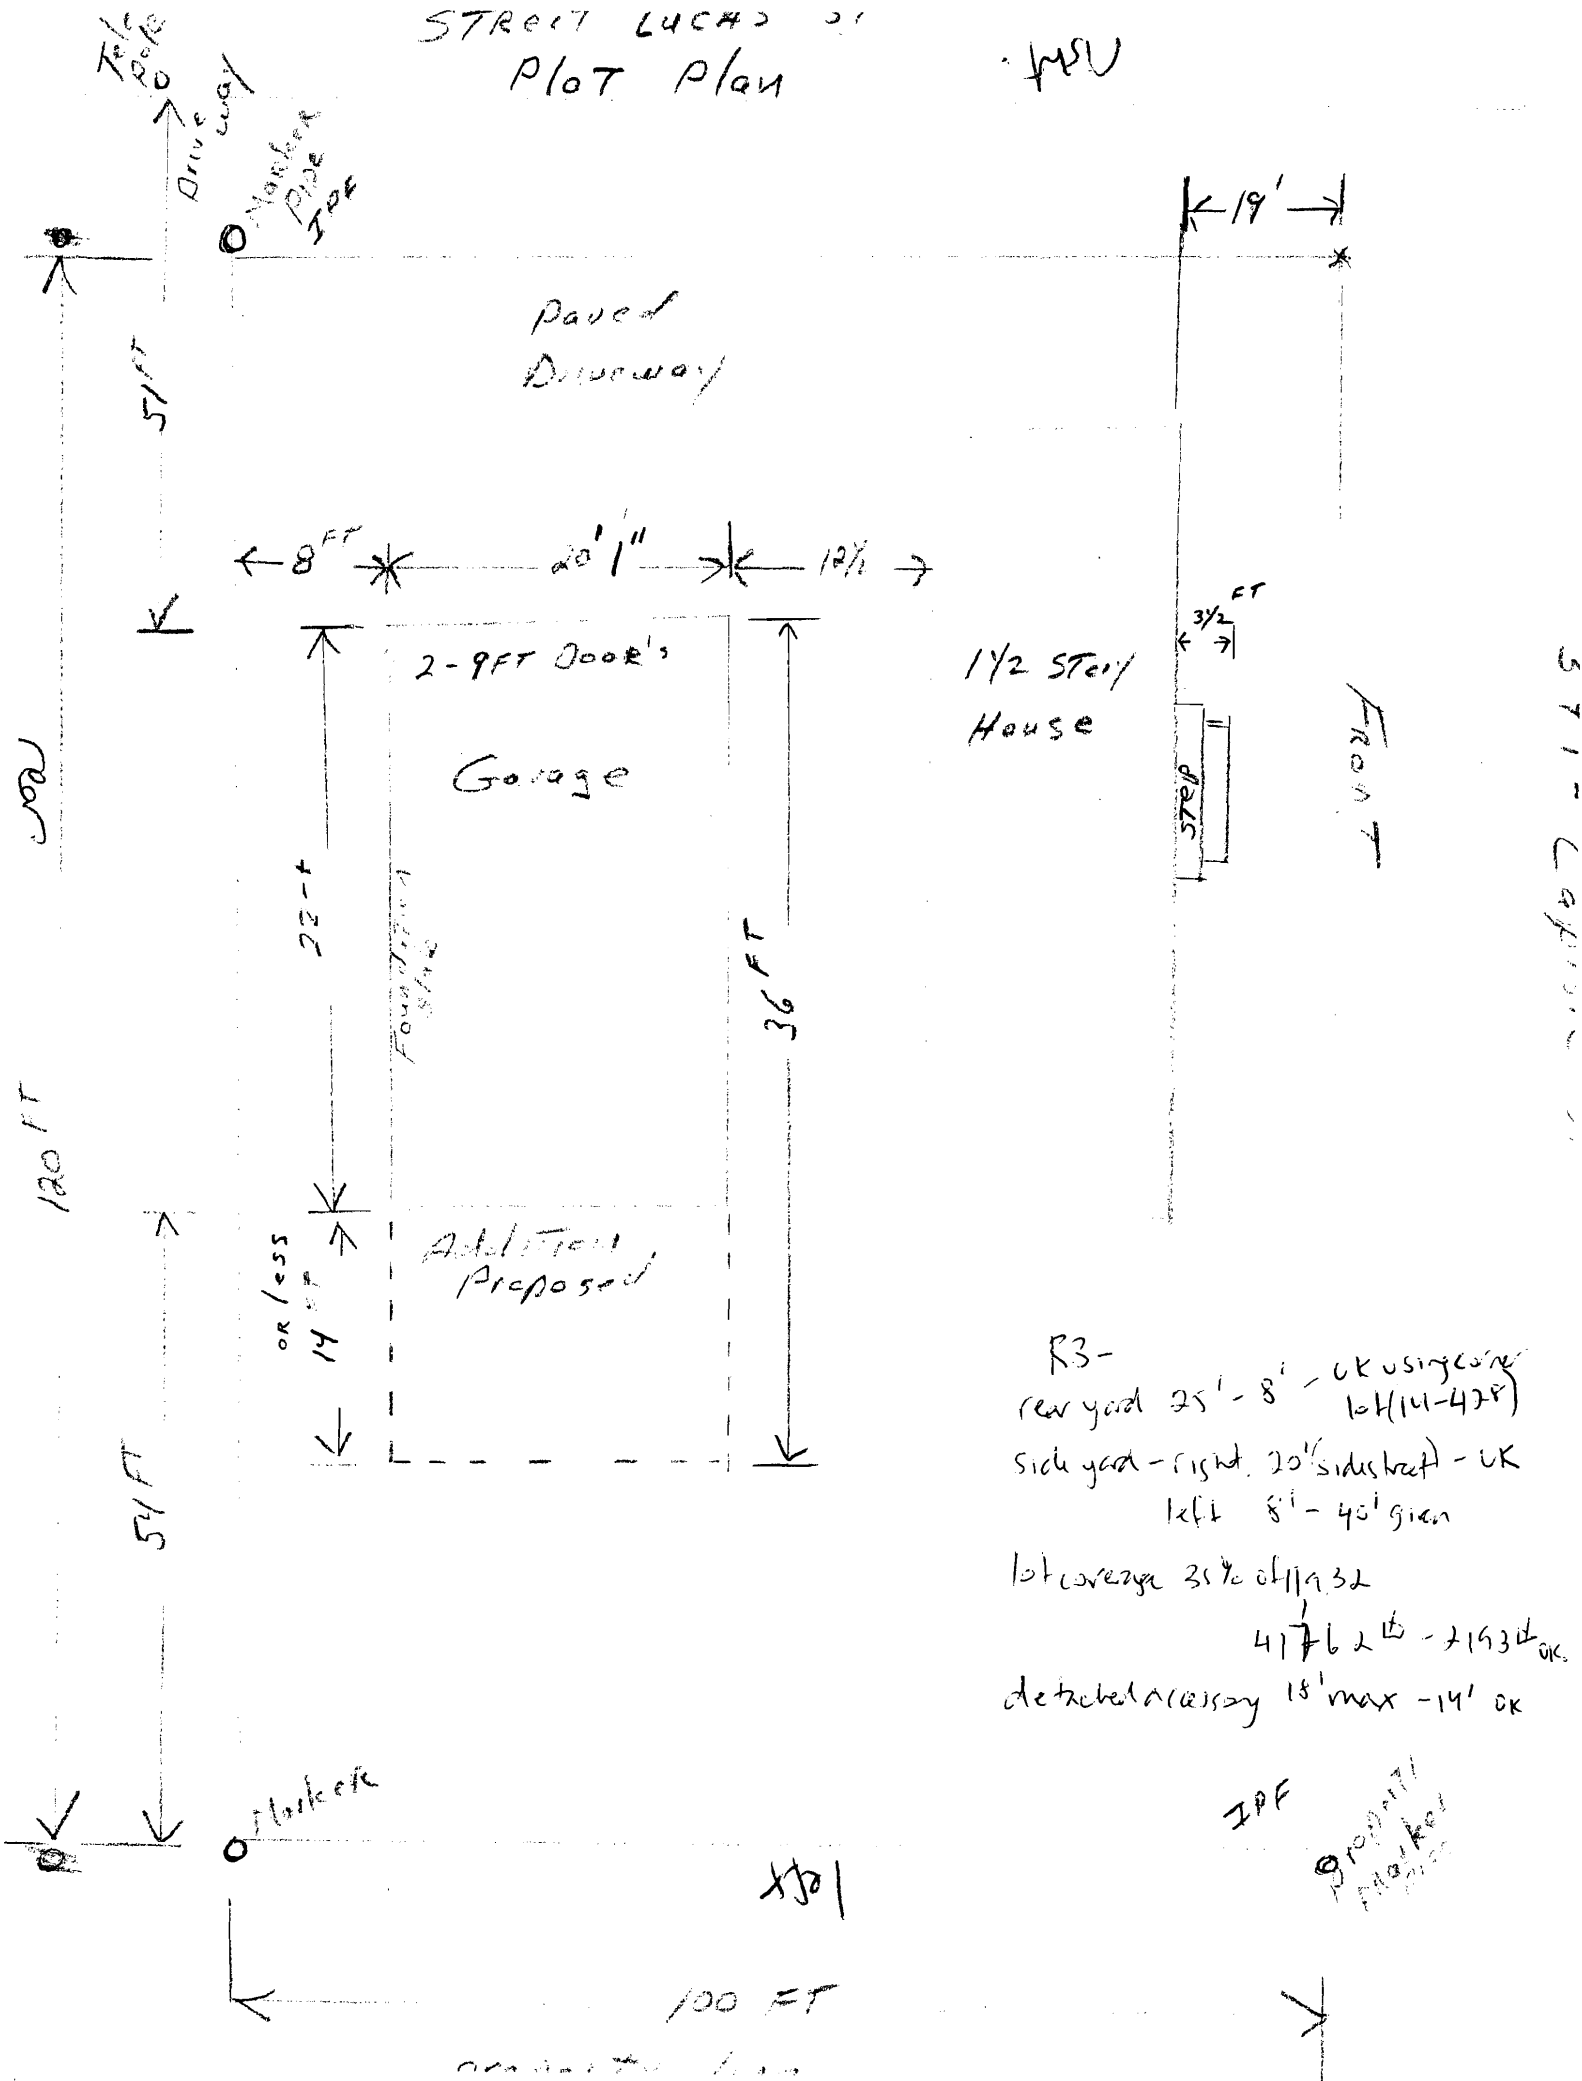 STREET LUCAS ST
PLOT Plan
Tele
Pole
Drive
way
Marker
Pipe
IPF
19'
Paved
Driveway
51 FT
8 FT
20' 1"
12½
3½ FT
2-9FT Door's
1½ Story
House
Garage
Step
FRONT
rear
22
Foundation
Slab
36 FT
120 FT
Addition
Proposed
OR less
14 FT
54 FT
R3-
rear yard 25' - 8' - OK using corner
lot (14-428)
side yard - right. 20' (side street) - OK
left 8' - 40' given
lot coverage 35% of 11932
detached accessory 18' max - 14' OK
Marker
IPF
Property
Marker
left
100 FT